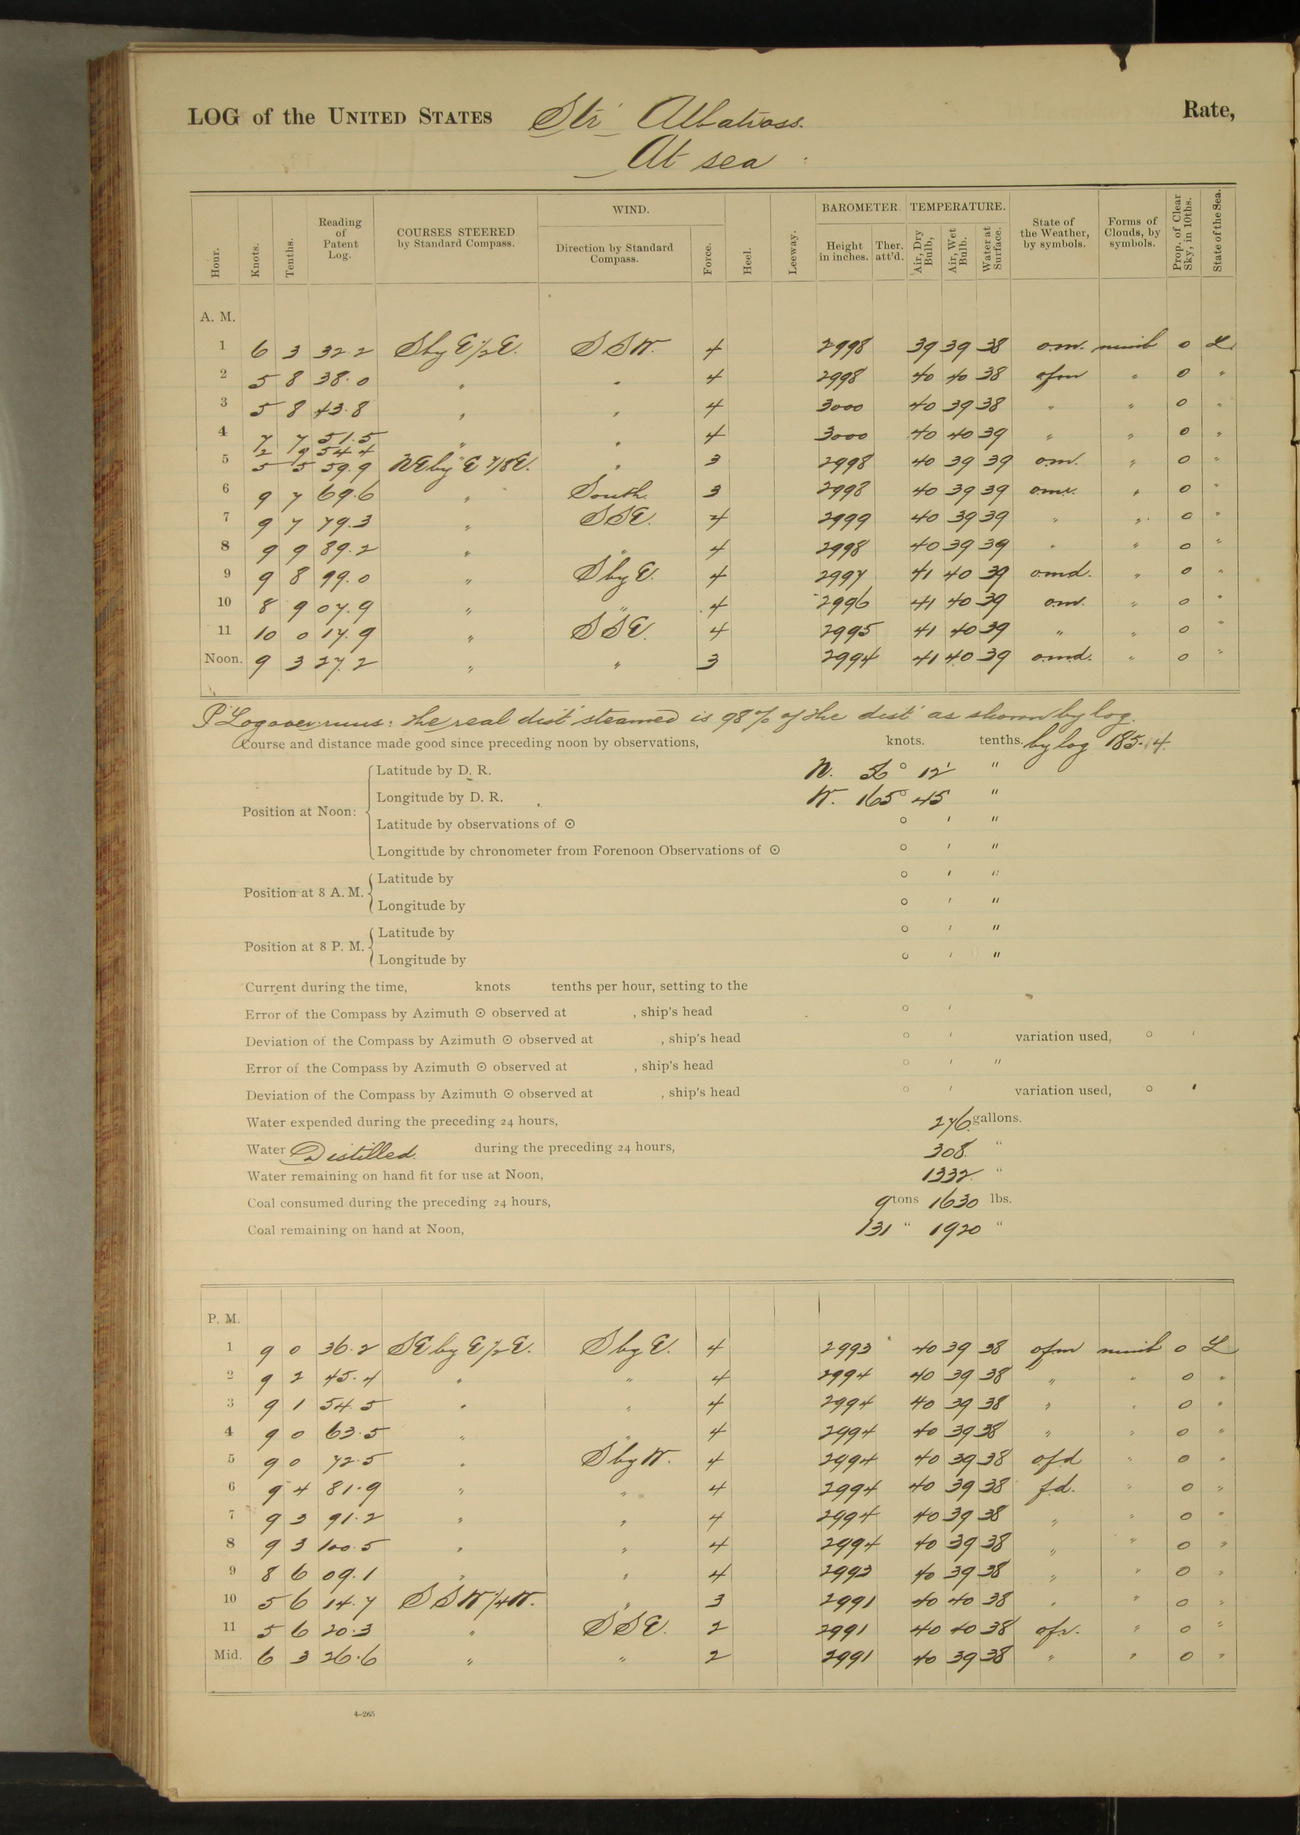 LOG of the UNITED STATES Str Albatross. Rate,
At sea
Hour. Knots. Tenths. Reading of Patent Log. COURSES STEERED by Standard Compass. WIND. Direction by Standard Compass. Force. Heel. Leeway. BAROMETER. Height in inches. Ther. att'd. TEMPERATURE. Air, Dry Bulb, Air, Wet Bulb. Water at Surface. State of the Weather, by symbols. Forms of Clouds, by symbols. Prop. of Clear Sky, in 10ths. State of the Sea.
A. M.
1 6 3 32 2 S by E 1/2 E. S S W. 4 2998 39 39 38 o.m. nimb 0 L
2 5 8 38.0 " " 4 2998 40 40 38 ofm " 0 "
3 5 8 43.8 " " 4 3000 40 39 38 " " 0 "
4 7 7 51.5 " " 4 3000 40 40 39 " " 0 "
2 9 54 4
5 5 5 59.9 NE by E 7/8 E. " 3 2998 40 39 39 o.m. " 0 "
6 9 7 69.6 " South 3 2998 40 39 39 omr. " 0 "
7 9 7 79.3 " S S E. 4 2999 40 39 39 " " 0 "
8 9 9 89.2 " " 4 2998 40 39 39 " " 0 "
9 9 8 99.0 " S by E. 4 2997 41 40 39 omd. " 0 "
10 8 9 07.9 " " 4 2996 41 40 39 om. " 0 "
11 10 0 17.9 " S S E. 4 2995 41 40 39 " " 0 "
Noon. 9 3 27.2 " " 3 2994 41 40 39 omd. " 0 "
P. Log overruns: the real dist steamed is 98% of the dist as shown by log.
Course and distance made good since preceding noon by observations, knots. tenths. by log 185.4
Position at Noon:
Latitude by D. R. N. 56° 12' "
Longitude by D. R. W. 165° 45 "
Latitude by observations of ⊙ ° ' "
Longitude by chronometer from Forenoon Observations of ⊙ ° ' "
Position at 8 A. M.
Latitude by ° ' "
Longitude by ° ' "
Position at 8 P. M.
Latitude by ° ' "
Longitude by ° ' "
Current during the time, knots tenths per hour, setting to the
Error of the Compass by Azimuth ⊙ observed at , ship's head ° '
Deviation of the Compass by Azimuth ⊙ observed at , ship's head ° ' variation used, ° '
Error of the Compass by Azimuth ⊙ observed at , ship's head ° ' "
Deviation of the Compass by Azimuth ⊙ observed at , ship's head ° ' variation used, ° '
Water expended during the preceding 24 hours, 276 gallons.
Water Distilled during the preceding 24 hours, 308 "
Water remaining on hand fit for use at Noon, 1332 "
Coal consumed during the preceding 24 hours, 9 tons 1630 lbs.
Coal remaining on hand at Noon, 131 " 1920 "
P. M.
1 9 0 36.2 SE by E 1/2 E. S by E. 4 2993 40 39 38 ofm nimb 0 L
2 9 2 45.4 " " 4 2994 40 39 38 " " 0 "
3 9 1 54.5 " " 4 2994 40 39 38 " " 0 "
4 9 0 63.5 " " 4 2994 40 39 38 " " 0 "
5 9 0 72.5 " S by W. 4 2994 40 39 38 ofd " 0 "
6 9 4 81.9 " " 4 2994 40 39 38 f.d. " 0 "
7 9 3 91.2 " " 4 2994 40 39 38 " " 0 "
8 9 3 100.5 " " 4 2994 40 39 38 " " 0 "
9 8 6 09.1 " " 4 2993 40 39 38 " " 0 "
10 5 6 14.7 S S W 1/4 W. " 3 2991 40 40 38 " " 0 "
11 5 6 20.3 " S S E. 2 2991 40 40 38 ofr. " 0 "
Mid. 6 3 26.6 " " 2 2991 40 39 38 " " 0 "
4-265